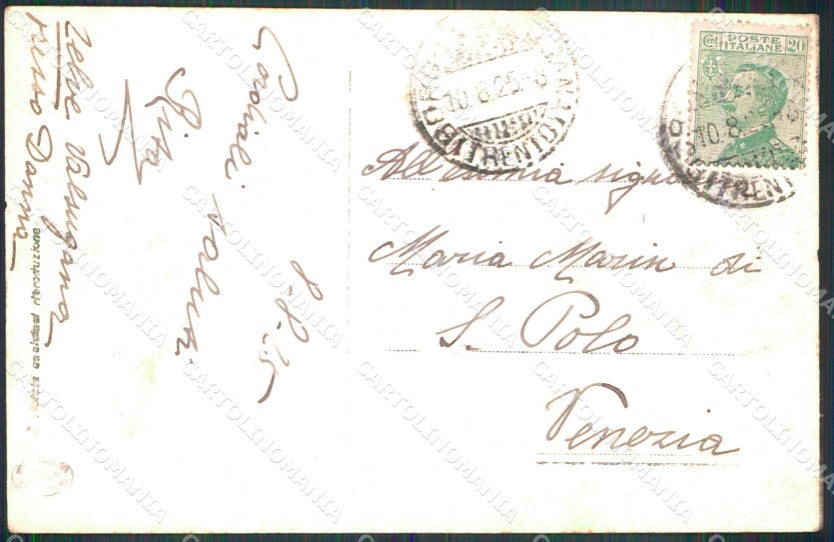 Cordiali saluti
Rita
8-8-25
Telve Valsugana
presso Danna
vietata qualsiasi riproduzione
10.8.25.8
(TRENTO)
POSTE
ITALIANE
Cent 20
10.8
(TRENT
All'esimia sign
Maria Marin di
S. Polo
Venezia
CARTOLINOMANIA